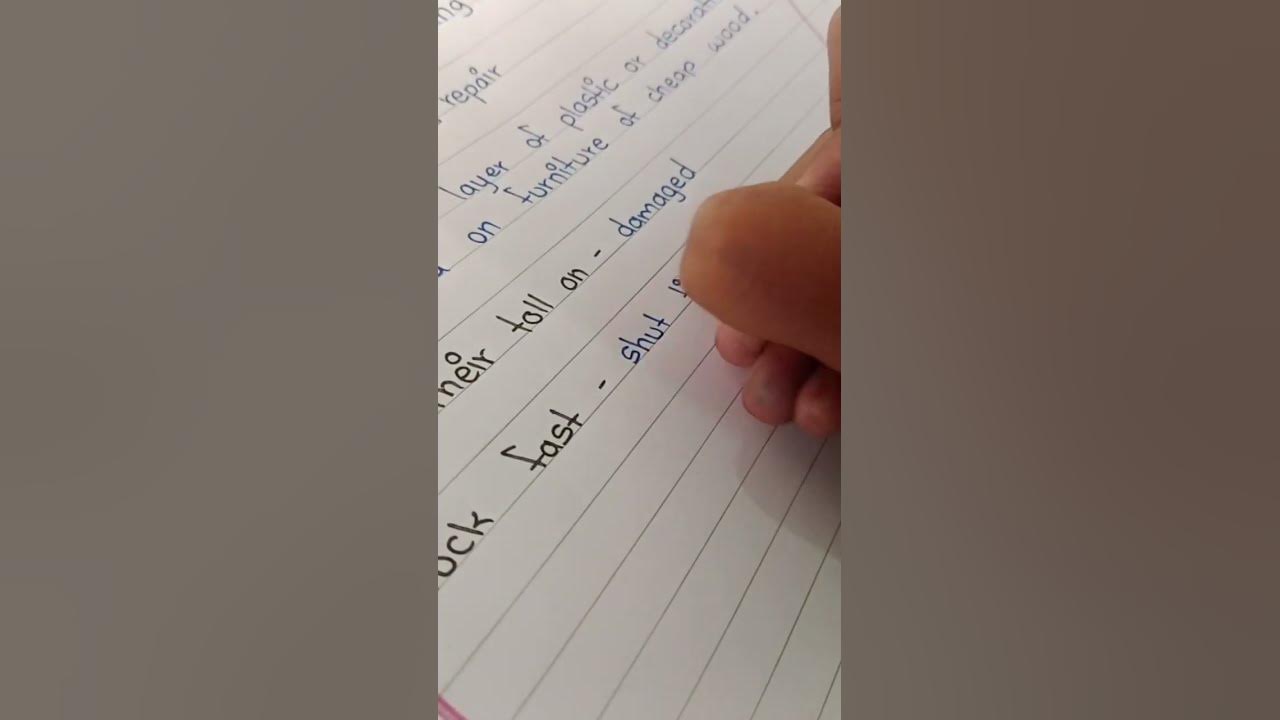 repair
layer of plastic or
on furniture of cheap wood.
their toll on - damaged
fast - shut